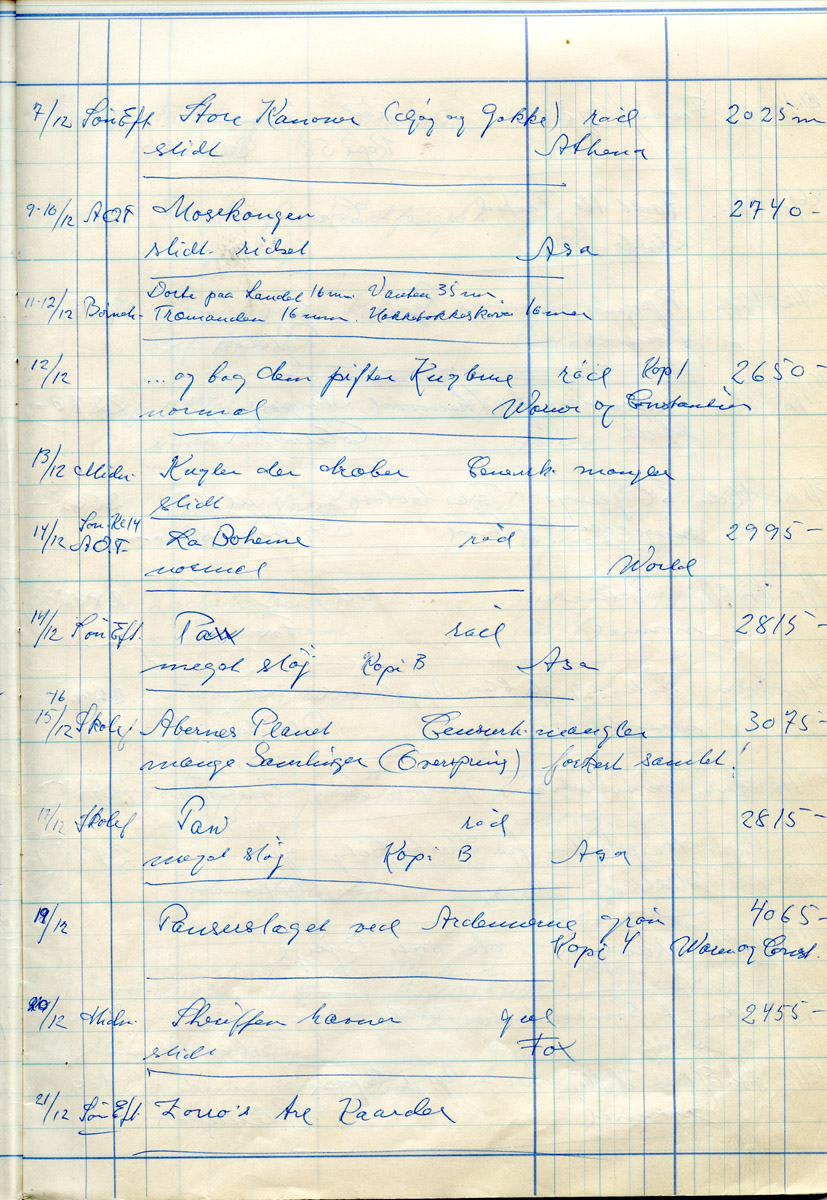 7/12 Søn Eft Store Kanoner (Gøg og Gokke) rød 2025 m
slidt Athena
9-10/12 AOF Mosekongen 2740-
slidt ridset Asa
11-12/12 Dorte paa Landet 16 mm Vanten 35 mm
Børneh. Tromanden 16 mm. 16 mm
12/12 ... og bag dem pifter Kuglerne rød Kopi 2650-
normal Warner og Constantin
13/12 Midn. Kugler der dræber Censurk. mangler
slidt
Søn. Kl 14
14/12 AOF. La Boheme rød 2995-
normal World
14/12 Søn Eft. Paw rød 2815-
meget støj Kopi B Asa
-16
15/12 Skolef Abernes Planet Censurk. mangler 3075-
mange Samlinger (Overspring) forkert samlet!
17/12 Skolef Paw rød 2815-
meget støj Kopi B Asa
19/12 Panserslaget ved Ardennerne grøn 4065-
Kopi 4 Warner og Const.
20/12 Midn. Sheriffen hævner gul 2455-
slidt Fox
21/12 Søn Eft Zorro's tre Kaarder